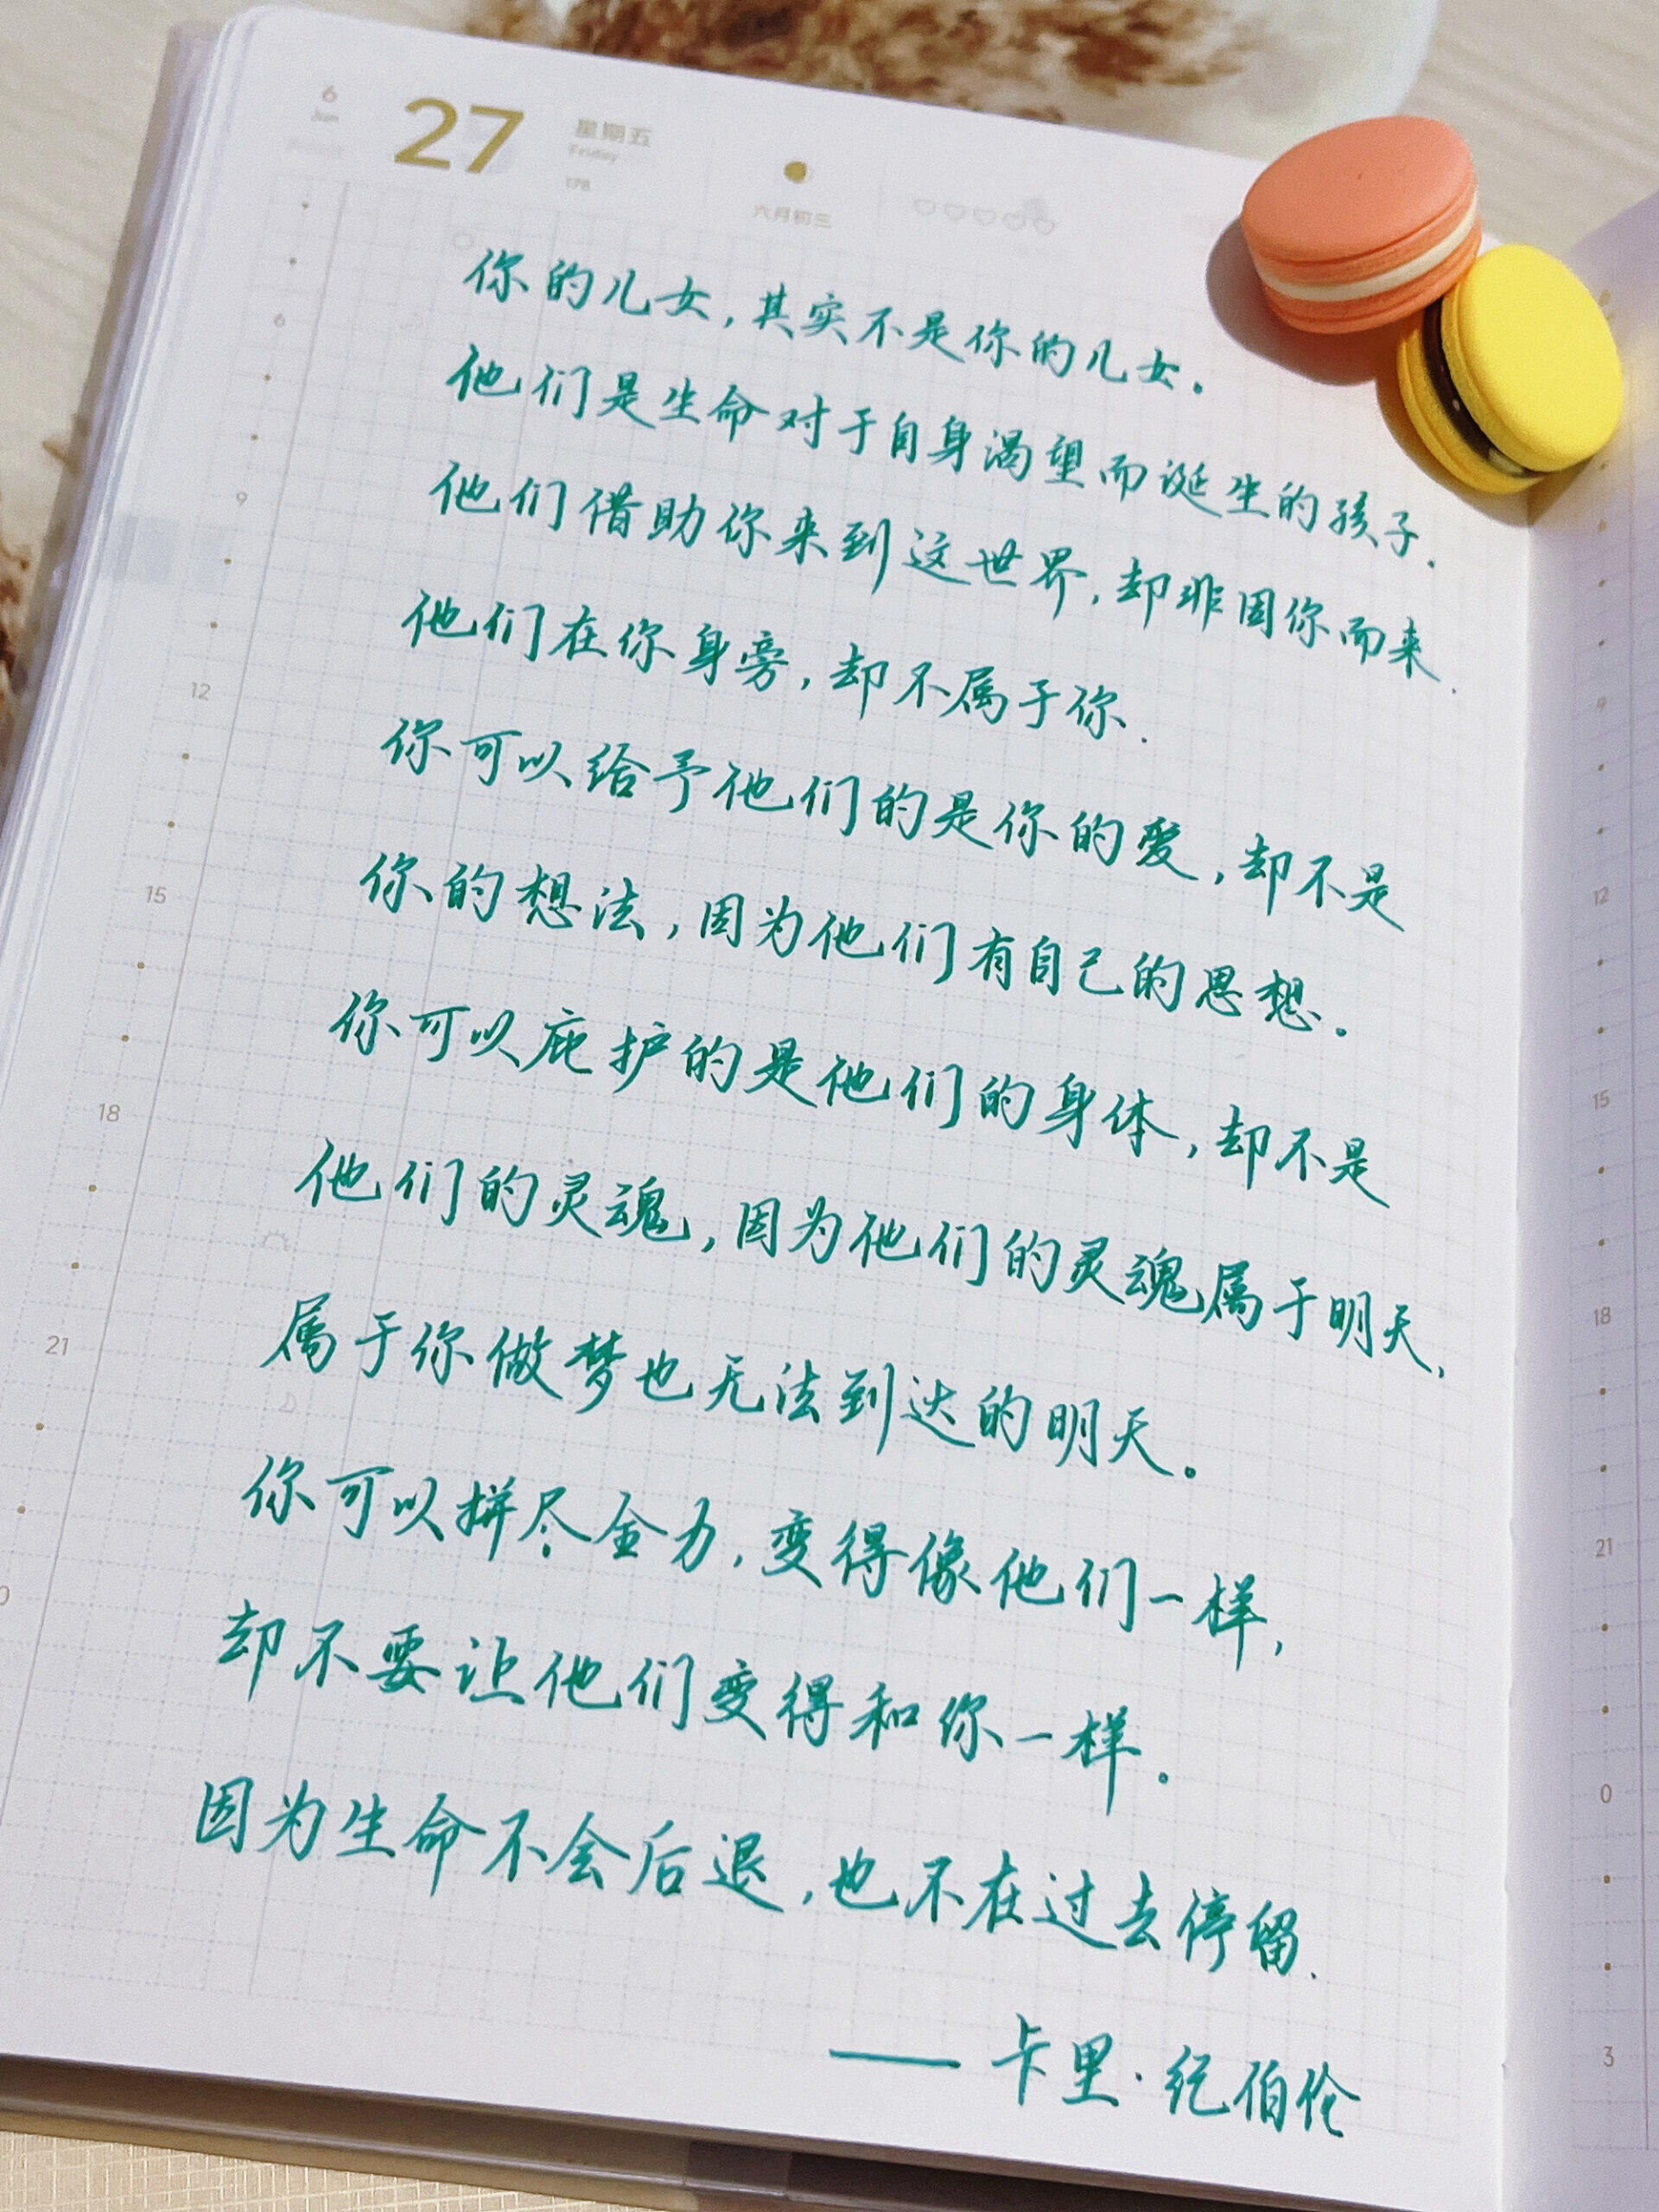 6
Jun
27
星期五
Friday
178
六月初三
你的儿女，其实不是你的儿女。
他们是生命对于自身渴望而诞生的孩子.
他们借助你来到这世界,却非因你而来.
他们在你身旁,却不属于你.
你可以给予他们的是你的爱,却不是
你的想法,因为他们有自己的思想。
你可以庇护的是他们的身体,却不是
他们的灵魂,因为他们的灵魂属于明天,
属于你做梦也无法到达的明天。
你可以拼尽全力,变得像他们一样,
却不要让他们变得和你一样。
因为生命不会后退,也不在过去停留.
——卡里·纪伯伦
6
9
12
15
18
21
0
9
12
15
18
21
0
3